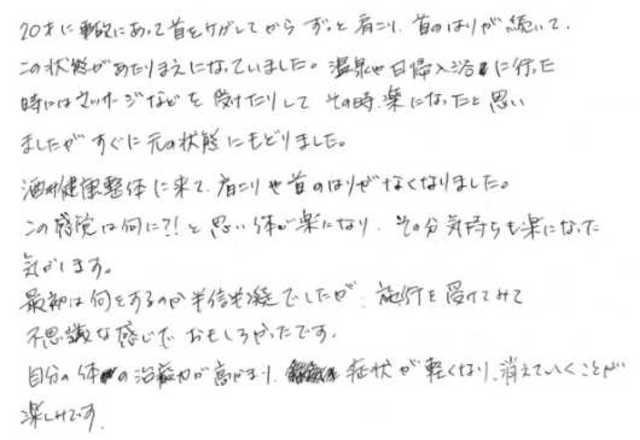 20才に事故にあって首をケガしてから ずっと肩こり、首のはりが続いて、
この状態があたりまえになっていました。温泉や日帰入浴に行った
時にはマッサージなどを受けたりして その時、楽になったと思い
ましたが すぐに元の状態にもどりました。
酒井健康整体に来て、肩こりや首のはりがなくなりました。
この感覚は何に?!と思い体が楽になり、その分気持ちも楽になった
気がします。
最初は何をするのか半信半凝でしたが、施術を受けてみて
不思議な感じで おもしろかったです。
自分の体の治癒力が高まり、症状が軽くなり、消えていくことが
楽しみです。